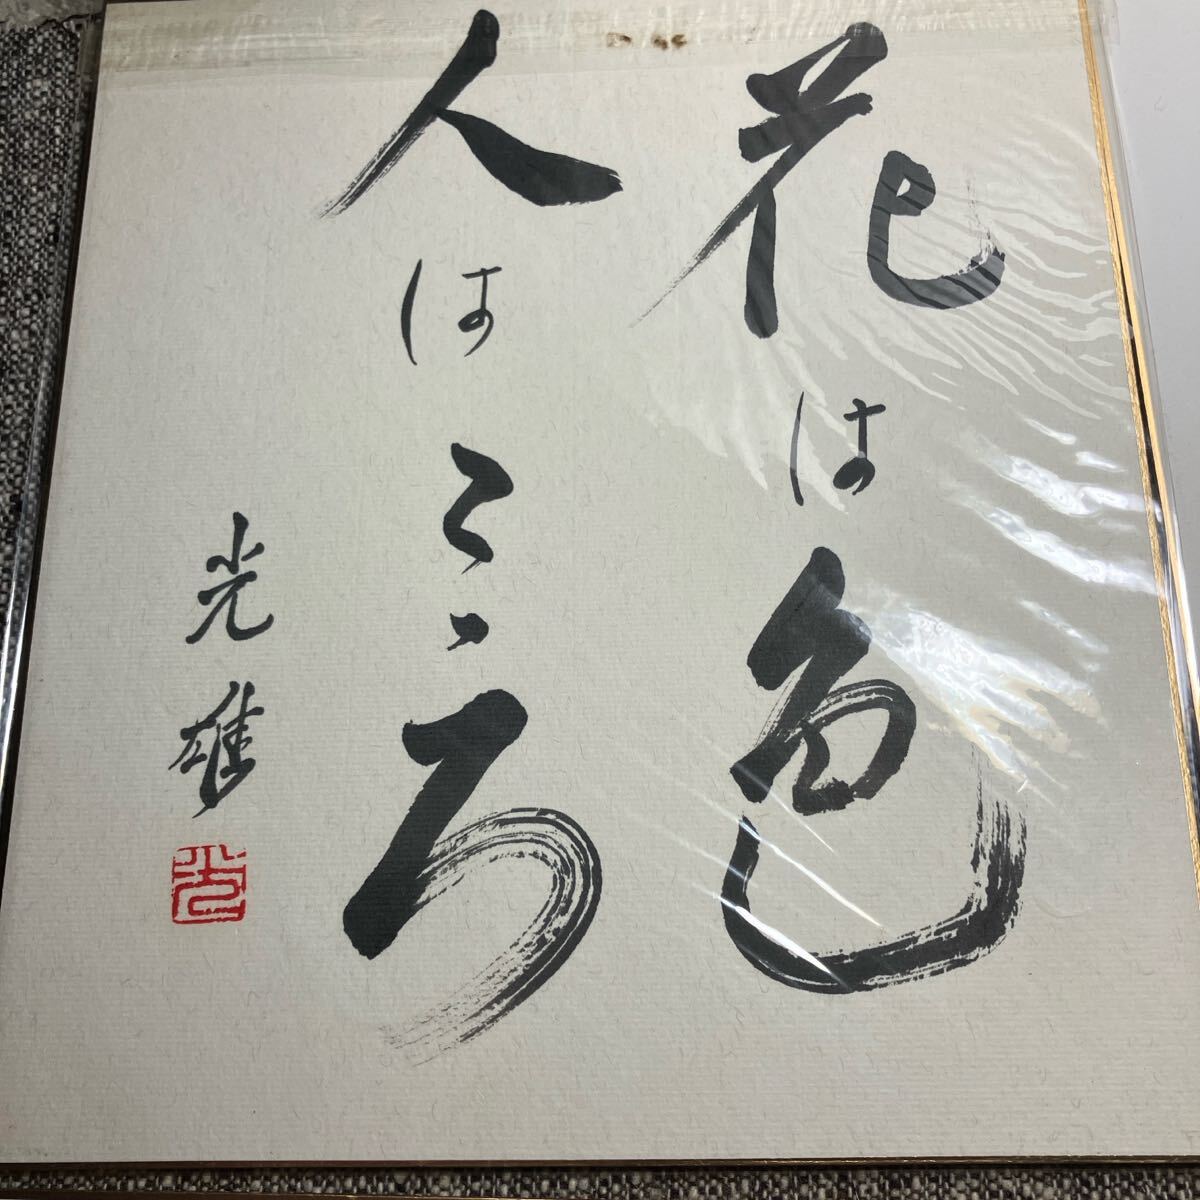 花は色
人はこゝろ
光雄
光